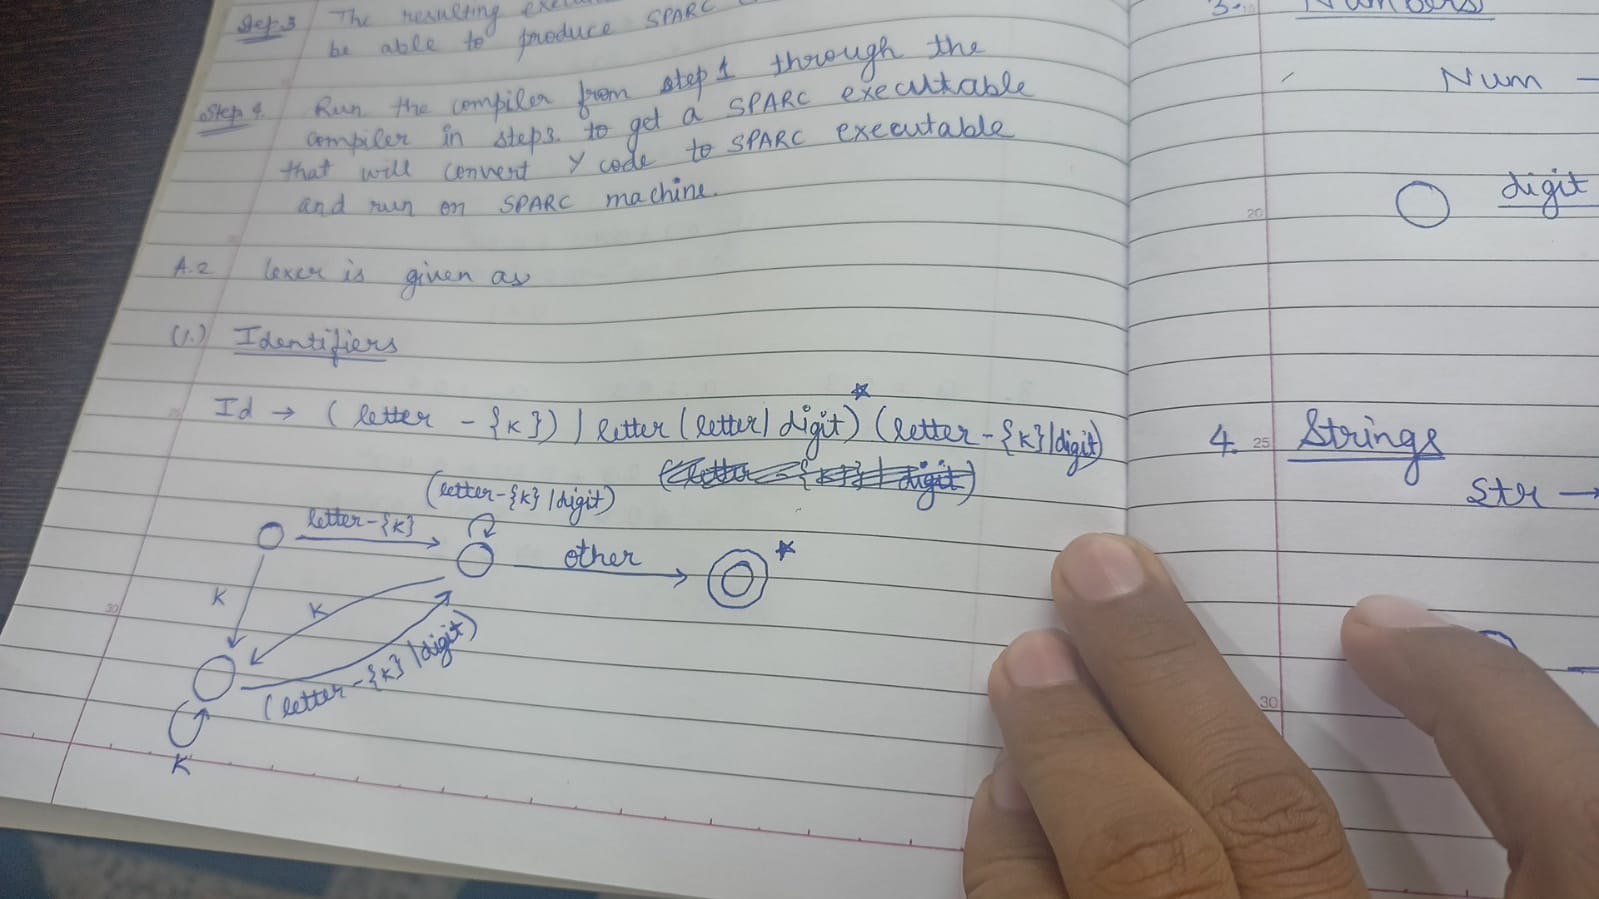 Step.3 The resulting
be able to produce SPARC
Step 4. Run the compiler from step 1 through the
compiler in step3. to get a SPARC executable
that will convert Y code to SPARC executable
and run on SPARC machine.
A.2 lexer is given as
(1.) Identifiers
Id → ( letter - {K}) | letter (letter| digit)* (letter-{K}|digit)
(letter-{K} |digit)
letter-{K}
other
*
K
K
(letter-{K} |digit)
K
30
3.
Numbers
Num →
20
digit
4. 25 Strings
Str →
30